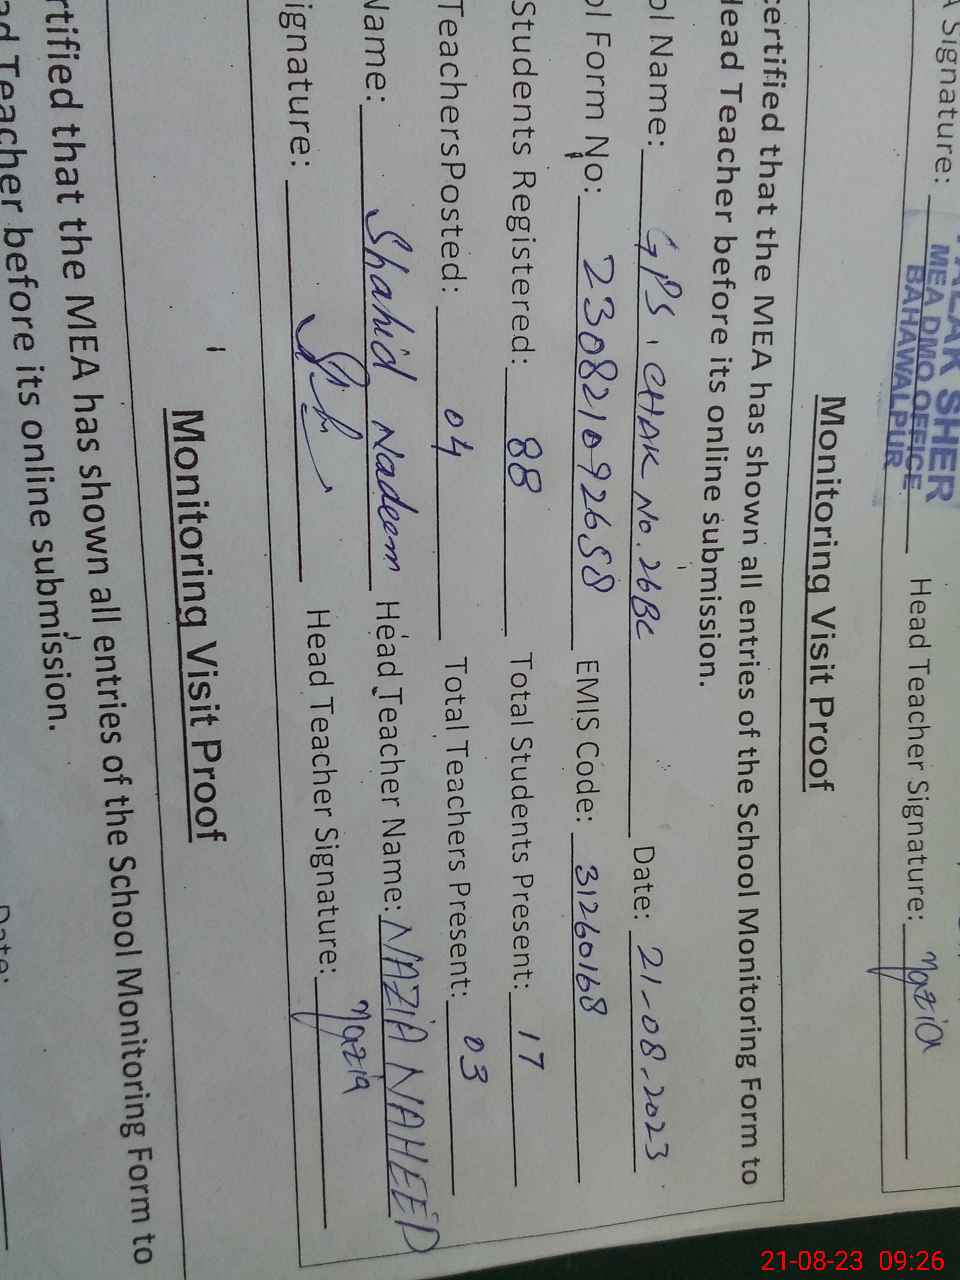 A Signature: Head Teacher Signature: Nazia
MALAK SHER
MEA DMO OFFICE
BAHAWALPUR
Monitoring Visit Proof
certified that the MEA has shown all entries of the School Monitoring Form to
Head Teacher before its online submission.
ol Name: GPS, CHAK No. 26BC Date: 21-08-2023
ol Form No: 230821092658 EMIS Code: 31260168
Students Registered: 88 Total Students Present: 17
TeachersPosted: 04 Total Teachers Present: 03
Name: Shahid Nadeem Head Teacher Name: NAZIA NAHEED
ignature: Head Teacher Signature: Nazia
Monitoring Visit Proof
rtified that the MEA has shown all entries of the School Monitoring Form to
ad Teacher before its online submission.
Date:
21-08-23 09:26